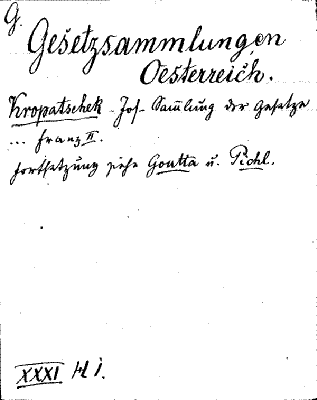 G.
Gesetzsammlungen
Oesterreich.
Kropatschek Jos. Sam̅lung der Gesetze
... Franz II.
Fortsetzung siehe Goutta u. Pichl.
XXXI H i.